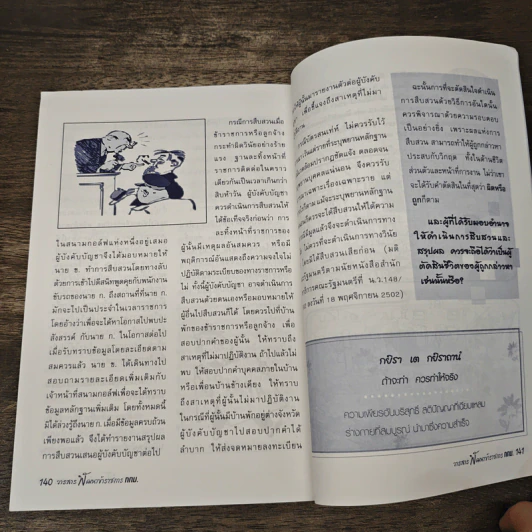 กรณีการสืบสวนเมื่อ
ข้าราชการหรือลูกจ้าง
กระทำผิดวินัยอย่างร้าย
แรง ฐานละทิ้งหน้าที่
ราชการติดต่อในคราว
เดียวกันเป็นเวลาเกินกว่า
สิบห้าวัน ผู้บังคับบัญชา
ควรดำเนินการสืบสวนให้
ได้ข้อเท็จจริงก่อนว่า การ
ละทิ้งหน้าที่ราชการของ
ผู้นั้นมีเหตุผลอันสมควร หรือมี
พฤติการณ์อันแสดงถึงความจงใจไม่
ปฏิบัติตามระเบียบของทางราชการหรือ
ไม่ ทั้งนี้ผู้บังคับบัญชา อาจดำเนินการ
สืบสวนด้วยตนเองหรือมอบหมายให้
ผู้อื่นไปสืบสวนก็ได้ โดยควรไปที่บ้าน
พักของข้าราชการหรือลูกจ้าง เพื่อ
สอบปากคำของผู้นั้น ให้ทราบถึง
สาเหตุที่ไม่มาปฏิบัติงาน ถ้าไปแล้วไม่
พบ ให้สอบปากคำบุคคลภายในบ้าน
หรือเพื่อนบ้านข้างเคียง ให้ทราบ
ถึงสาเหตุที่ผู้นั้นไม่มาปฏิบัติงาน
ในกรณีที่ผู้นั้นมีบ้านพักอยู่ต่างจังหวัด
ผู้บังคับบัญชาไปสอบปากคำได้
ลำบาก ให้ส่งจดหมายลงทะเบียน
ในสนามกอล์ฟแห่งหนึ่งอยู่เสมอ
ผู้บังคับบัญชาจึงได้มอบหมายให้
นาย ช. ทำการสืบสวนโดยทางลับ
ด้วยการเข้าไปตีสนิทพูดคุยกับพนักงาน
ขับรถของนาย ก. ถึงสถานที่ที่นาย ก.
มักจะไปเป็นประจำในเวลาราชการ
โดยอ้างว่าเพื่อจะได้หาโอกาสไปพบปะ
สังสรรค์ กับนาย ก. ในโอกาสต่อไป
เมื่อรับทราบข้อมูลโดยละเอียดตาม
สมควรแล้ว นาย ช. ได้เดินทางไป
สอบถามรายละเอียดเพิ่มเติมกับ
เจ้าหน้าที่สนามกอล์ฟเพื่อจะได้ทราบ
ข้อมูลหลักฐานเพิ่มเติม โดยทั้งหมดนี้
มิได้ล่วงรู้ถึงนาย ก. เมื่อมีข้อมูลครบถ้วน
เพียงพอแล้ว จึงได้ทำรายงานสรุปผล
การสืบสวนเสนอผู้บังคับบัญชาต่อไป
140 วารสาร
ข้าราชการ กทม.
ผู้นั้นมารายงานตัวต่อผู้บังคับ
เพื่อชี้แจงถึงสาเหตุที่ไม่มา
บัตรสนเท่ห์ ไม่ควรรับไว้
เว้นแต่รายที่ระบุพยานหลักฐาน
ปรากฏชัดแจ้ง ตลอดจน
พยานบุคคลแน่นอน จึงควรรับ
เฉพาะเรื่องเฉพาะราย แต่
แม้จะระบุพยานหลักฐาน
ควรจะได้สืบสวนให้ได้ความ
มูลแล้วจึงจะดำเนินการทาง
ไม่ควรที่จะดำเนินการทางวินัย
ได้สืบสวนเสียก่อน (มติ
รัฐมนตรีตามนัยหนังสือสำนัก
เลขาธิการคณะรัฐมนตรีที่ น.ว.148/
ลงวันที่ 18 พฤศจิกายน 2502)
ฉะนั้นการที่จะตัดสินใจดำเนิน
การสืบสวนด้วยวิธีการอันใดนั้น
ควรพิจารณาด้วยความรอบคอบ
เป็นอย่างยิ่ง เพราะผลแห่งการ
สืบสวน สามารถทำให้ผู้ถูกกล่าวหา
ประสบกับวิกฤต ทั้งในด้านชีวิต
ส่วนตัวและหน้าที่การงาน ไม่ว่าเขา
จะได้รับคำตัดสินในที่สุดว่า ผิดหรือ
ถูกก็ตาม
และผู้ที่ได้รับมอบอำนาจ
ให้ดำเนินการสืบสวนและ
สรุปผล ควรจะถือได้ว่าเป็นผู้
ตัดสินชีวิตของผู้ถูกกล่าวหา
เช่นนั้นหรือ?
กยิรา เจ กยิราถานํ
ถ้าจะทำ ควรทำให้จริง
ความเพียรอันบริสุทธิ์ สติปัญญาที่เฉียบแหลม
ร่างกายที่สมบูรณ์ นำมาซึ่งความสำเร็จ
วารสาร
ข้าราชการ กทม. 141